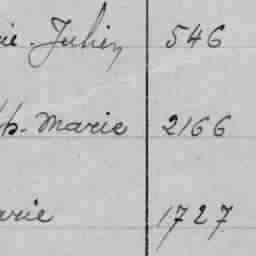 ie. Julien 546
p. Marie 2166
arie 1727